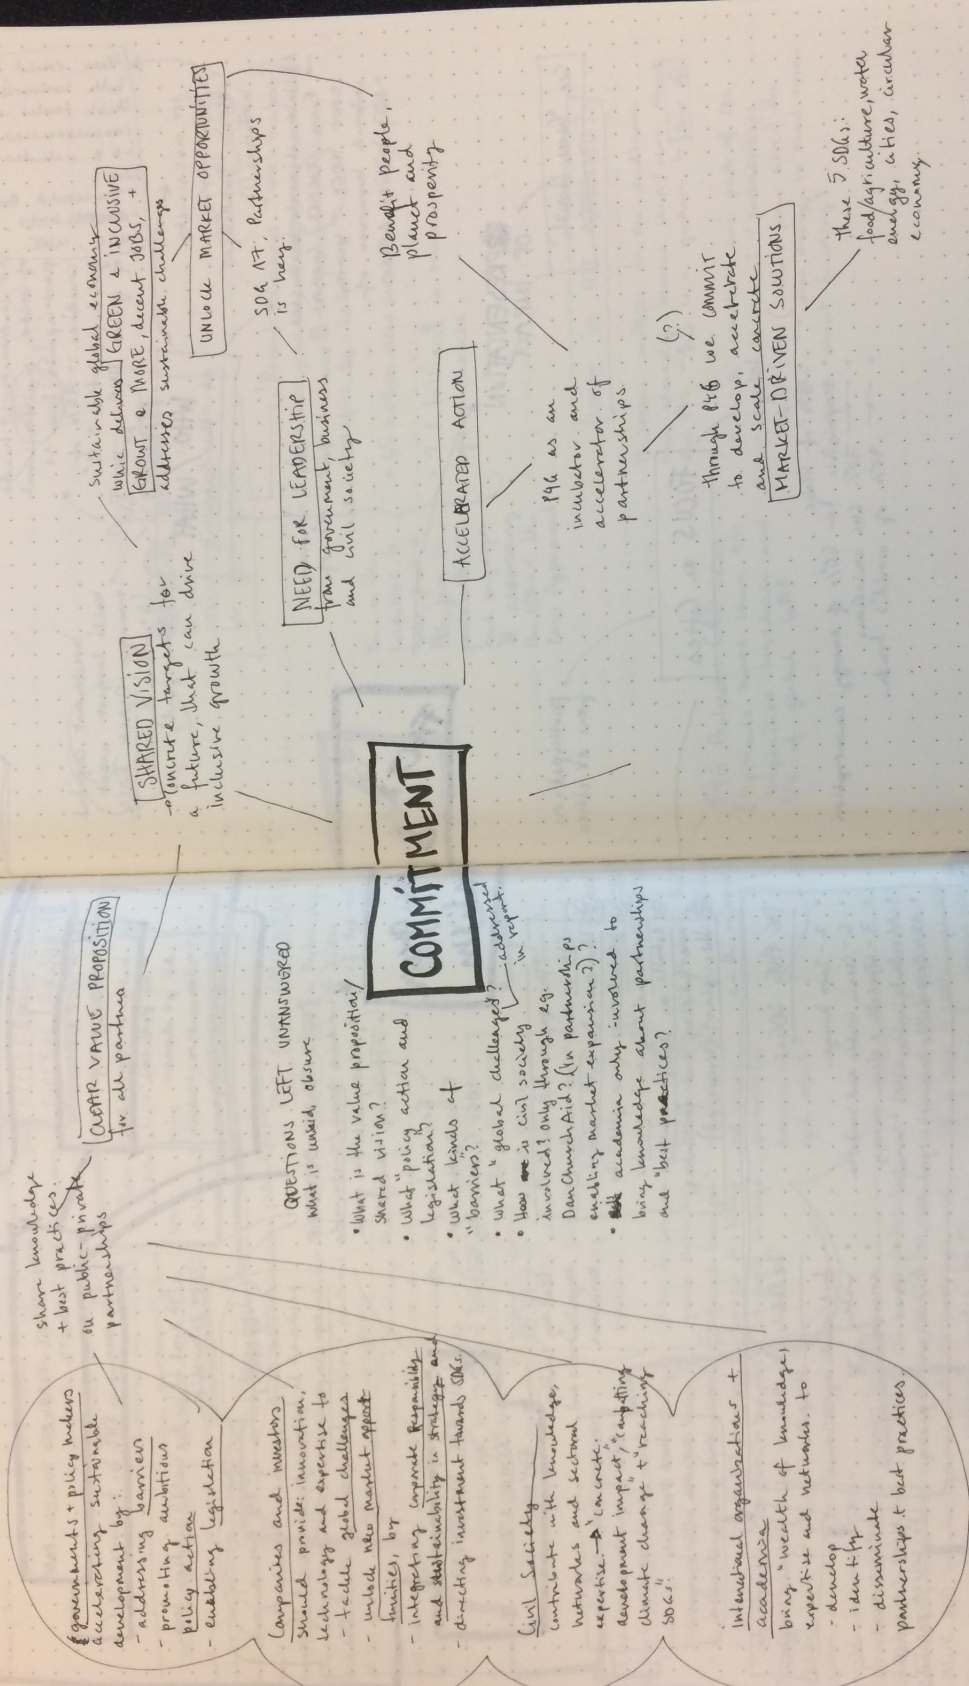 share knowledge
+ best practices.
on public-private
partnerships
CLEAR VALUE PROPOSITION
for all partners
governments + policy makers
accelerating sustainable
development by:
- addressing barriers
- promoting ambitious
policy action
- enabling legislation
Companies and investors
should provide: innovation,
technology and expertise to
- tackle global challenges
- unlock new market opport
tunities, by
- integrating corporate Responsibility
and sustainability in strategy and
- directing investment towards SDGs.
Civil Society
contribute with knowledge,
networks and sectoral
expertise → "concrete
development impact", "combatting
climate change" + "reaching
SDGs."
International organisations +
academia
bring "wealth of knowledge,
expertise and networks. to
- develop
- identify
- disseminate
partnerships + best practices.
QUESTIONS LEFT UNANSWERED
what is unsaid, obsure
• What is the value proposition/
shared vision?
• What "policy action and
legislation"?
• What kinds of
"barriers"?
• What "global challenges"?
addressed
in report.
• How is civil society
involved? only through eg.
DanChurchAid? (In partnerships
enabling market expansion?)?
• academia only involved to
bring knowledge about partnerships
and "best practices?
COMMITMENT
SHARED VISION
→ concrete targets for
a future, that can drive
inclusive growth
Sustainable global economy
whic delivers GREEN & INCLUSIVE
GROWT & MORE, decent JOBS, +
addresses sustainable challenges
UNLOCK MARKET OPPORTUNITIES
SDG 17, Partnerships
is key.
NEED FOR LEADERSHIP
from government, business
and civil society
Benefit people,
planet and
prosperity
ACCELERATED ACTION
P4G as an
incubator and
accelerator of
partnerships
(?)
through P4G we commit
to develop, accelerate
and scale concrete
MARKET-DRIVEN SOLUTIONS
these 5 SDGs:
food/agriculture, water
energy, cities, circular
economy.